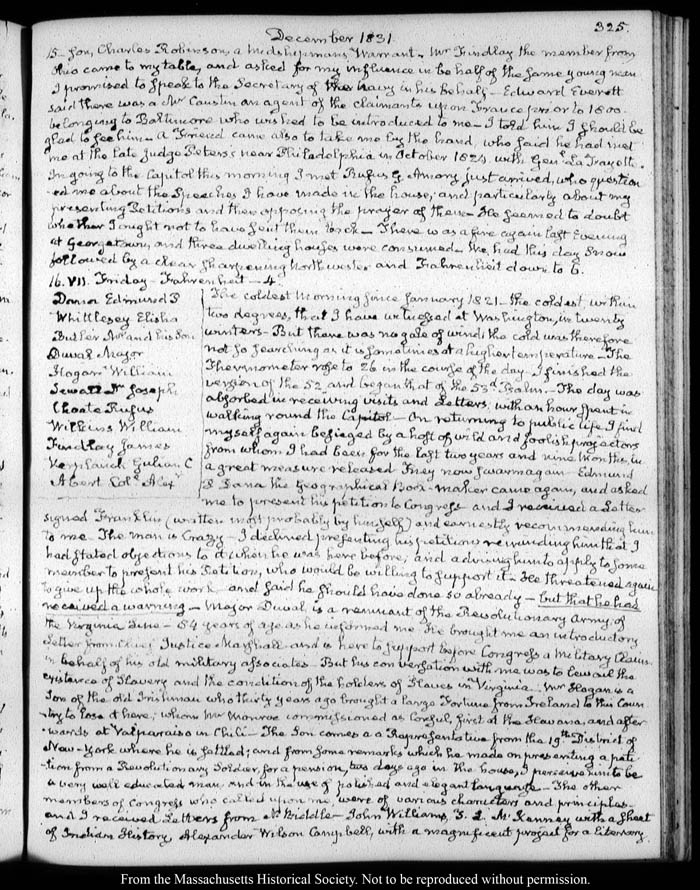 December 1831.
325.
15- son, Charles Robinson, a Midshipman's Warrant. Mr Findlay the member from
Ohio came to my table, and asked for my influence in behalf of the same young man
I promised to speak to the Secretary of the Navy in his behalf- Edward Everett
said there was a Mr Causten an agent of the claimants upon France prior to 1800.
belonging to Baltimore who wished to be introduced to me- I told him I should be
glad to see him- A Friend came also to take me by the hand, who said he had met
me at the late Judge Peters's near Philadelphia in October 1824 with Genl La Fayette.
In going to the Capitol this morning I met Rufus G. Amory just arrived, who question
-ed me about the Speeches I have made in the house, and particularly about my
presenting Petitions and then opposing the prayer of them- He seemed to doubt
whether I ought not to have sent them back- There was a fire again last Evening
at Georgetown, and three dwelling houses were consumed- We had this day Snow
followed by a clear sharpening Northwester and Fahrenheit down to 6.
16. VII. Friday- Fahrenheit- 4.
Dana Edmund P
Whittlesey Elisha
Butler Mr and his Son
Duval Major
Hogan William
Sewall Joseph
Choate Rufus
Wilkins William
Findlay James
Verplanck Gulian C
Abert Coll Alex
The coldest morning since January 1821- the coldest, within
two degrees, that I have witnessed at Washington, in twenty
winters- But there was no gale of wind: the cold was therefore
not so searching as it is sometimes at a higher temperature- The
Thermometer rose to 26 in the course of the day- I finished the
version of the 52 and began that of the 53d Psalm.- The day was
absorbed in receiving visits and Letters, with an hour spent in
walking round the Capitol- On returning to public life I find
myself again besieged by a host of wild and foolish projectors
from whom I had been for the last two years and nine Months, in
a great measure released They now swarm again- Edmund
P Dana the Geographical Book-maker came again, and asked
me to present his petition to Congress- and I received a Letter
signed Franklin (written most probably by himself) and earnestly recommending him
to me- The man is crazy- I declined presenting his petition reminding him that I
had stated objections to it when he was here before, and advising him to apply to some
member to present his Petition, who would be willing to support it- He threatened again
to give up the whole work and said he should have done so already- but that he had
received a warning- Major Duval is a remnant of the Revolutionary Army, of
the Virginia Line- 84 years of age as he informed me- He brought me an introductory
Letter from Chief Justice Marshall- and is here to support before Congress a Military Claim
in behalf of his old military associates- But his conversation with me was to bewail the
existence of Slavery and the condition of the holders of Slaves in Virginia. Mr Hogan is a
Son of the old Irishman who thirty years ago brought a large Fortune from Ireland to this Coun
-try to lose it here; whom Mr Monroe commissioned as Consul, first at the Havana, and after
-wards at Valparaiso in Chili- The Son comes as a Representative from the 19th District of
New-York where he is settled; and from some remarks which he made on presenting a peti-
tion from a Revolutionary Soldier, for a pension, two days ago in the house, I perceive him to be
a very well educated man, and in the use of polished and elegant language- The other
members of Congress who called upon me, were of various characters and principles-
and I received Letters from Biddle- John Williams, T. L. McKenney with a sheet
of Indian History, Alexander Wilson Campbell, with a magnificent project for a literary
From the Massachusetts Historical Society. Not to be reproduced without permission.